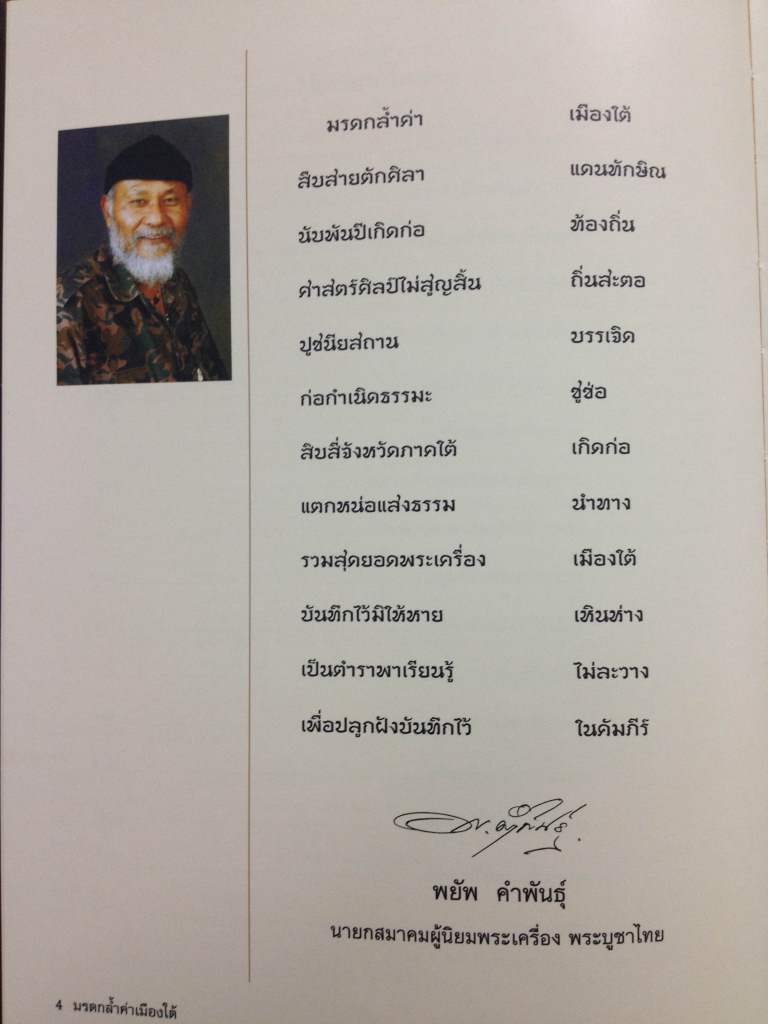 มรดกล้ำค่า เมืองใต้
สืบสายตักศิลา แดนทักษิณ
นับพันปีเกิดก่อ ท้องถิ่น
ศาสตร์ศิลป์ไม่สูญสิ้น ถิ่นสะตอ
ปูชนียสถาน บรรเจิด
ก่อกำเนิดธรรมะ ชูช่อ
สิบสี่จังหวัดภาคใต้ เกิดก่อ
แตกหน่อแสงธรรม นำทาง
รวมสุดยอดพระเครื่อง เมืองใต้
บันทึกไว้มิให้หาย เหินห่าง
เป็นตำราพาเรียนรู้ ไม่ละวาง
เพื่อปลูกฝังบันทึกไว้ ในคัมภีร์
พยัพ คำพันธุ์
นายกสมาคมผู้นิยมพระเครื่อง พระบูชาไทย
4 มรดกล้ำค่าเมืองใต้